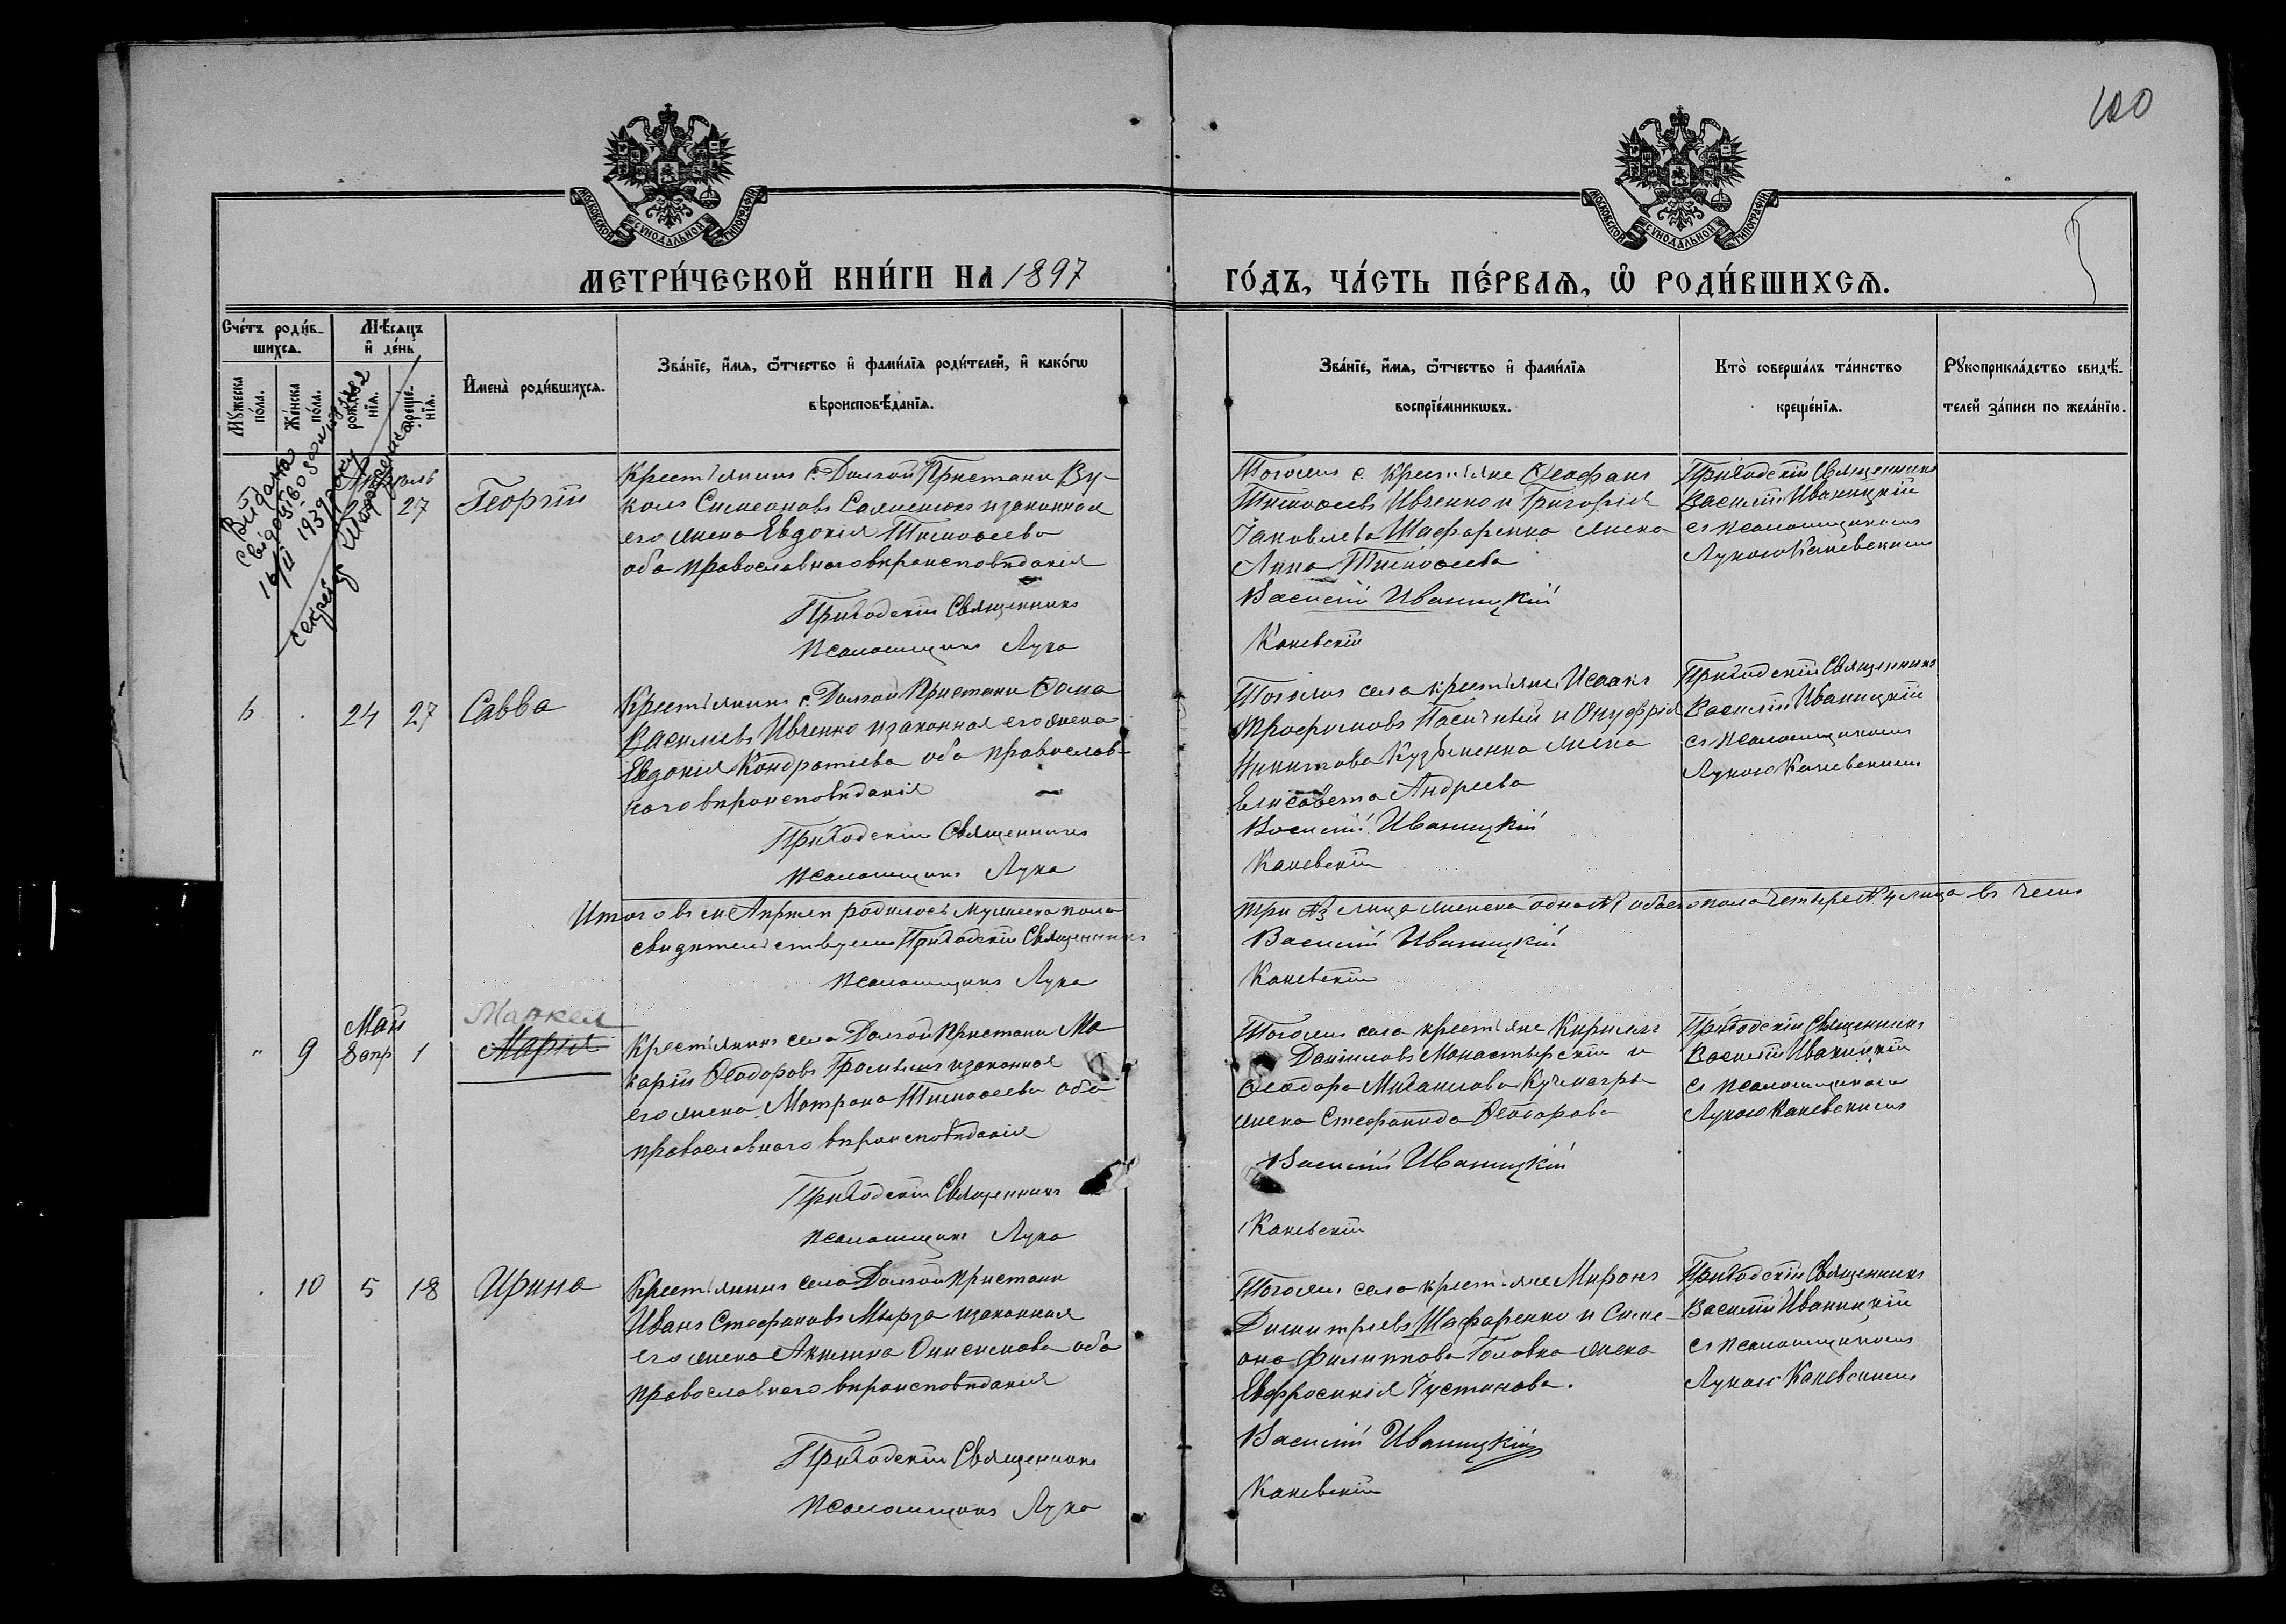 100
МОСКОВСКОЙ СѴНОДАЛЬНОЙ ТИПОГРАФІИ
МОСКОВСКОЙ СѴНОДАЛЬНОЙ ТИПОГРАФІИ
МЕТРИ́ЧЕСКОЙ КНИ́ГИ НА 1897
ГО́ДЪ, ЧА́СТЬ ПЕ́РВАѦ, Ѡ҆ РОДИ́ВШИХСѦ.
Сче́тъ роди́в-
шихсѧ.
Мꙋ́жеска по́ла.
Же́нска по́ла.
Мѣ́сѧцъ
и҆ де́нь
рожде́нїѧ.
креще́нїѧ.
И҆мена̀ роди́вшихсѧ.
Зва́нїе, и҆́мѧ, ѻ҆́тчество и҆ фами́лїѧ роди́телей, и҆ како́гѡ
вѣроисповѣ́данїѧ.
Зва́нїе, и҆́мѧ, ѻ҆́тчество и҆ фами́лїѧ
воспрїе́мникѡвъ.
Кто̀ соверша́лъ та́инство
креще́нїѧ.
Рꙋкоприкла́дство свидѣ́-
телей за́писи по жела́нїю.
Видана
16/II 1939 року
Секретар
Апрѣль
27
Георгій
Крестьянинъ с. Долгой Пристани Ву-
колъ Симеоновъ Самсенюкъ и законная
его жена Евдокія Тимоѳеева
оба православнаго вѣроисповѣданія
Приходскій Священникъ
Псаломщикъ Лука
Тогожъ с. крестьяне Ѳеофанъ
Тимоѳеевъ Ивченко и Григорія
Іаковлева Шафаренка жена
Анна Тимоѳеева
Василій Иваницкій
Каневскій
Приходскій Священникъ
Василій Иваницкій
съ псаломщикомъ
Лукою Каневскимъ
6 24 27 Савва
Крестьянинъ с. Долгой Пристани Ѳома
Василіевъ Ивченко и законная его жена
Евдокія Кондратіева оба православ-
наго вѣроисповѣданія
Приходскій Священникъ
Псаломщикъ Лука
Тогожъ села крестьяне Исаакъ
Трофимовъ Пасичный и Онуфрія
Никитова Кузьменка жена
Елисавета Андреева
Василій Иваницкій
Каневскій
Приходскій Священникъ
Василій Иваницкій
съ псаломщикомъ
Лукою Каневскимъ
Итого въ м. Апрѣлѣ родилось мужеска пола
три №3 лица женска одна №1 обоего пола четыре №4 лица въ чемъ
свидѣтельствуемъ Приходскій Священникъ
Василій Иваницкій
Псаломщикъ Лука
Каневскій
Май
" 9 8 апр 1
Маркел
Марія
Крестьянинъ села Долгой Пристани Ма
карій Ѳеодоровъ Громыкъ и законная
его жена Матрона Тимоѳеева оба
православнаго вѣроисповѣданія
Приходскій Священникъ
Псаломщикъ Лука
Тогожъ села крестьяне Кириллъ
Даніиловъ Монастырскій и
Ѳеодора Михаилова Кучмагры
жена Стефанида Ѳеодорова
Василій Иваницкій
Каневскій
Приходскій Священникъ
Василій Иваницкій
съ псаломщикомъ
Лукою Каневскимъ
10 5 18 Ирина
Крестьянинъ села Долгой Пристани
Иванъ Стефановъ Мырза и законная
его жена Акилина Онисимова оба
православнаго вѣроисповѣданія
Приходскій Священникъ
Псаломщикъ Лука
Тогожъ села крестьяне Миронъ
Димитріевъ Шафаренко и Симе-
она Филиппова Головка жена
Евфросинія Іустинова.
Василій Иваницкій
Каневскій
Приходскій Священникъ
Василій Иваницкій
съ псаломщикомъ
Лукою Каневскимъ